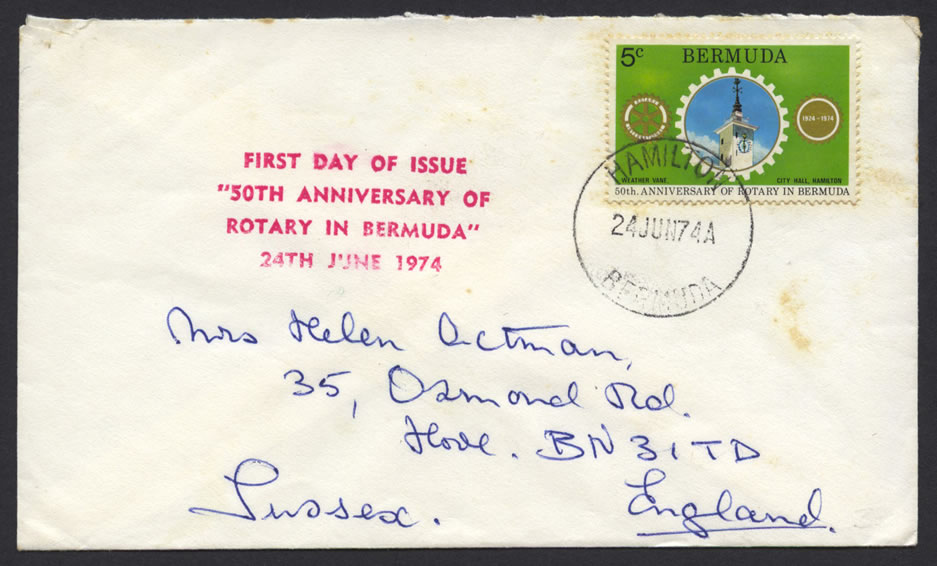 5c BERMUDA
1924-1974
WEATHER VANE. CITY HALL, HAMILTON
50th. ANNIVERSARY OF ROTARY IN BERMUDA
HAMILTON
24JUN74A
BERMUDA
FIRST DAY OF ISSUE
"50TH ANNIVERSARY OF
ROTARY IN BERMUDA"
24TH JUNE 1974
Mrs Helen Actman,
35, Osmond Rd.
Hove. BN31TD
Sussex.
England.